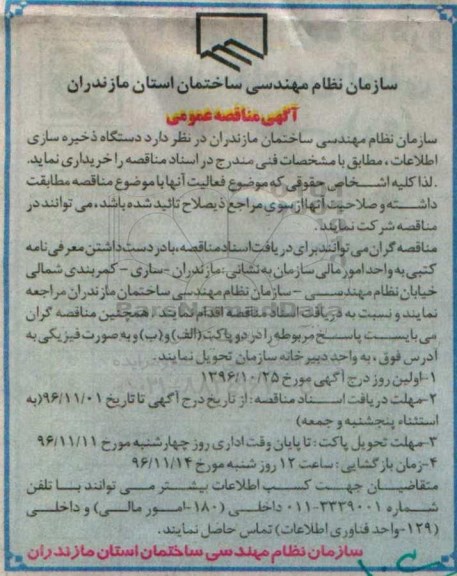 سازمان نظام مهندسی ساختمان استان مازندران
آگهی مناقصه عمومی
سازمان نظام مهندسی ساختمان مازندران در نظر دارد دستگاه ذخیره سازی
اطلاعات ، مطابق با مشخصات فنی مندرج در اسناد مناقصه را خریداری نماید.
. لذا کلیه اشخاص حقوقی که موضوع فعالیت آنها با موضوع مناقصه مطابقت
داشته و صلاحیت آنها از سوی مراجع ذیصلاح تائید شده باشد ، می توانند در
مناقصه شرکت نمایند.
مناقصه گران می توانند برای دریافت اسناد مناقصه ، با در دست داشتن معرفی نامه
کتبی به واحد امور مالی سازمان به نشانی : مازندران -ساری - کمربندی شمالی
خیابان نظام مهندسی - سازمان نظام مهندسی ساختمان مازندران مراجعه
نمایند و نسبت به دریافت اسناد مناقصه اقدام نمایند . همچنین مناقصه گران
می بایست پاسخ مربوطه را در دو پاکت (الف) و (ب) و به صورت فیزیکی به
آدرس فوق ، به واحد دبیرخانه سازمان تحویل نمایند.
۱-اولین روز درج آگهی مورخ ۱۳۹۶/۱۰/۲۵
۲-مهلت دریافت اسناد مناقصه : از تاریخ درج آگهی تا تاریخ ۹۶/۱۱/۰۱(به
استثناء پنجشنبه و جمعه)
۳-مهلت تحویل پاکت : تا پایان وقت اداری روز چهارشنبه مورخ ۹۶/۱۱/۱۱
۴-زمان بازگشایی : ساعت ۱۲ روز شنبه مورخ ۹۶/۱۱/۱۴
متقاضیان جهت کسب اطلاعات بیشتر می توانند با تلفن
شماره ۳۳۳۹۰۰۱-۰۱۱ داخلی (۱۸۰-امور مالی) و داخلی
(۱۲۹-واحد فناوری اطلاعات) تماس حاصل نمایند.
سازمان نظام مهندسی ساختمان استان مازندران